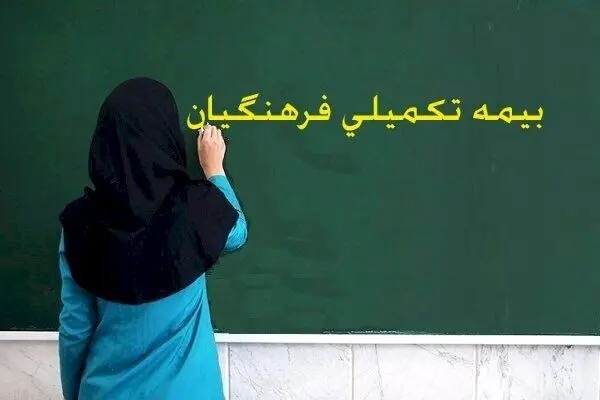 بیمه تکمیلي فرهنگیان